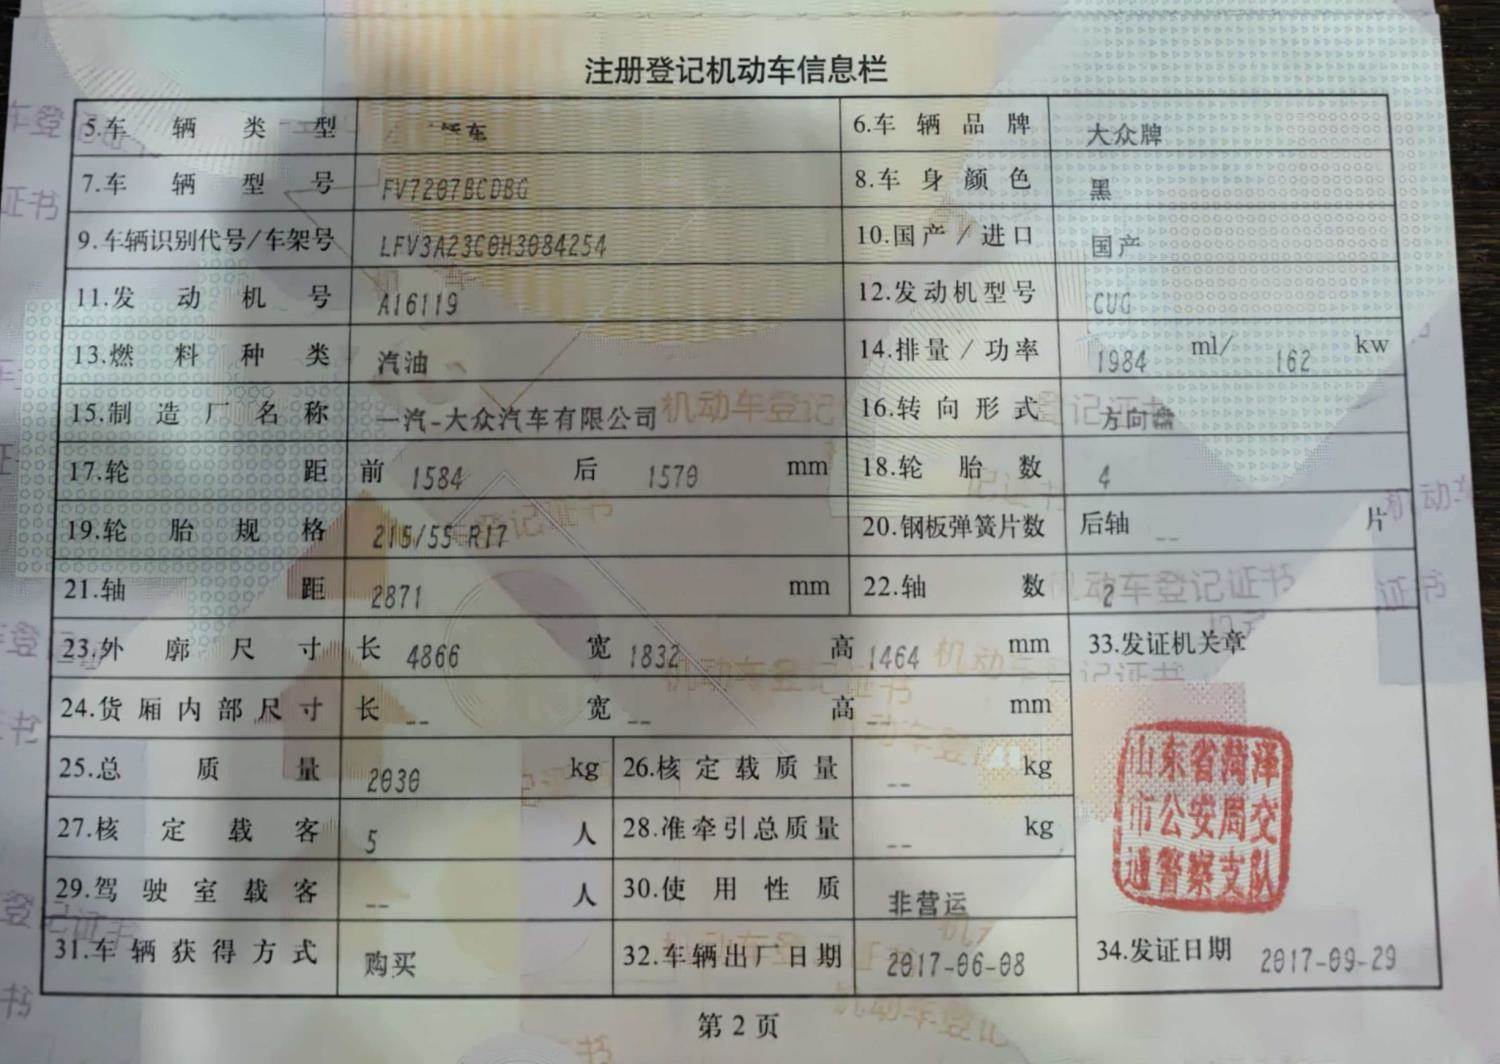 注册登记机动车信息栏
5.车辆类型 轿车 6.车辆品牌 大众牌
7.车辆型号 FV7207BCDBG 8.车身颜色 黑
9.车辆识别代号/车架号 LFV3A23C0H3084254 10.国产/进口 国产
11.发动机号 A16119 12.发动机型号 CUG
13.燃料种类 汽油 14.排量/功率 1984 ml/ 162 kw
15.制造厂名称 一汽-大众汽车有限公司 16.转向形式 方向盘
17.轮距 前 1584 后 1570 mm 18.轮胎数 4
19.轮胎规格 215/55 R17 20.钢板弹簧片数 后轴 -- 片
21.轴距 2871 mm 22.轴数 2
23.外廓尺寸 长 4866 宽 1832 高 1464 mm 33.发证机关章
24.货厢内部尺寸 长 -- 宽 -- 高 -- mm
山东省菏泽
市公安局交
通警察支队
25.总质量 2030 kg 26.核定载质量 -- kg
27.核定载客 5 人 28.准牵引总质量 -- kg
29.驾驶室载客 -- 人 30.使用性质 非营运
31.车辆获得方式 购买 32.车辆出厂日期 2017-06-08 34.发证日期 2017-09-29
第2页